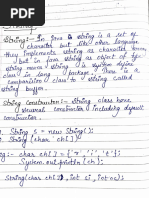 String
String:- In Java a string is a set of
character but like other language
they implements string as character
but in java string as object of type
string means string is a system define
class in lang package. There is a
comparision class to string called
string buffer.
String constructor:- String class have
several constructor including default
constructor.
String s = new String();
char ch[] =
:- char ch[] = {
System.out.println(ch);
String(char ch[], int si, int